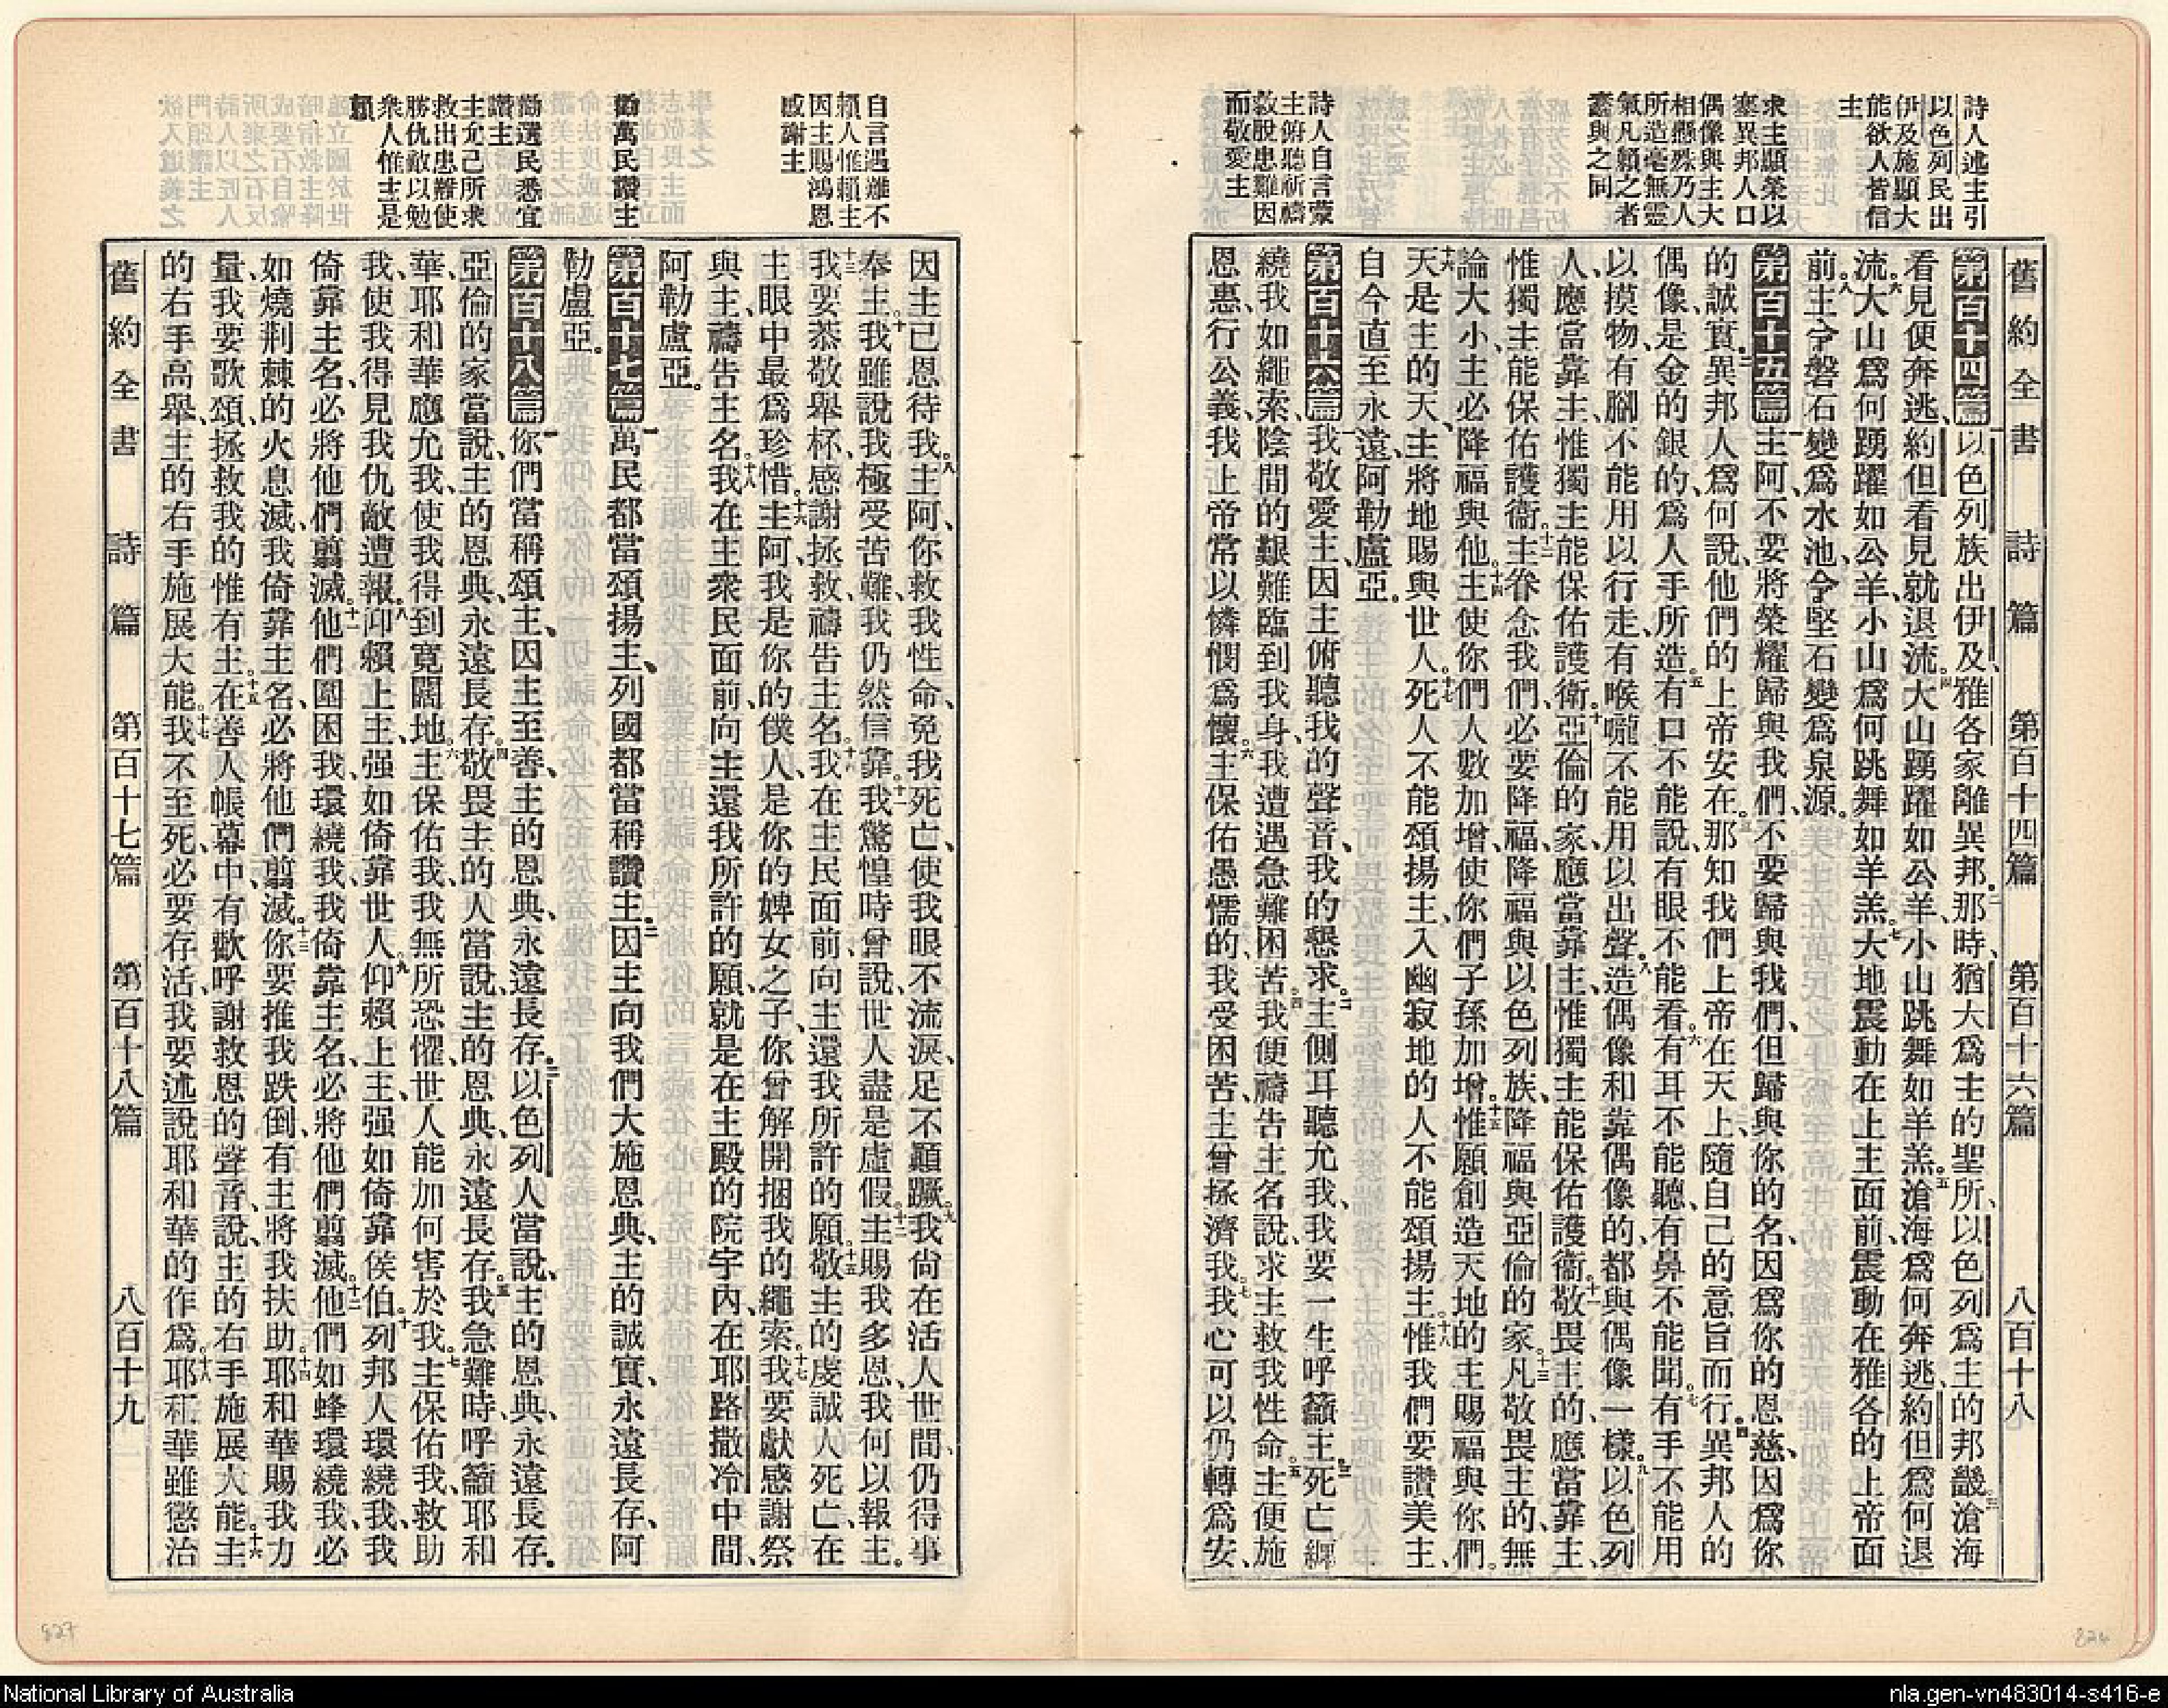 詩人述主引
以色列民出
伊及施顯大
能欲人皆信
主
求主顯榮以
塞異邦人口
偶像與主大
相懸殊乃人
所造毫無靈
氣凡賴之者
蠢與之同
詩人自言蒙
主俯聽祈禱
救脫患難因
而敬愛主
舊約全書 詩篇 第百十四篇 第百十六篇 八百十八
第百十四篇 一以色列族出伊及、雅各家離異邦、二那時、猶大爲主的聖所、以色列爲主的邦畿、三滄海
看見便奔逃、約但看見就退流。四大山踴躍如公羊、小山跳舞如羊羔。五滄海爲何奔逃、約但爲何退
流。六大山爲何踴躍如公羊、小山爲何跳舞如羊羔。七大地震動在上主面前、震動在雅各的上帝面
前。八主令磐石變爲水池、令堅石變爲泉源。
第百十五篇 一主阿、不要將榮耀歸與我們、不要歸與我們、但歸與你的名、因爲你的恩慈、因爲你
的誠實。二異邦人爲何說、他們的上帝安在。三那知我們上帝在天上、隨自己的意旨而行。四異邦人的
偶像、是金的銀的、爲人手所造。五有口不能說、有眼不能看。六有耳不能聽、有鼻不能聞。七有手不能用
以摸物、有腳不能用以行走、有喉嚨不能用以出聲。八造偶像和靠偶像的、都與偶像一樣。九以色列
人、應當靠主、惟獨主能保佑護衛。十亞倫的家、應當靠主、惟獨主能保佑護衞。十一敬畏主的、應當靠主、
惟獨主能保佑護衞。十二主眷念我們、必要降福、降福與以色列族、降福與亞倫的家。十三凡敬畏主的、無
論大小、主必降福與他。十四主使你們人數加增、使你們子孫加增。十五惟願創造天地的主、賜福與你們。
十六天是主的天、主將地賜與世人。十七死人不能頌揚主、入幽寂地的人不能頌揚主。十八惟我們要讚美主、
自今直至永遠、阿勒盧亞。
第百十六篇 一我敬愛主、因主俯聽我的聲音、我的懇求。二主側耳聽允我、我要一生呼籲主。三死亡繩
繞我如繩索、陰間的艱難臨到我身、我遭遇急難困苦。四我便禱告主名說、求主救我性命。五主便施
恩惠、行公義、我上帝常以憐憫爲懷。六主保佑愚懦的、我受困苦、主曾拯濟我。七我心可以仍轉爲安、
自言遇難不
賴人惟賴主
因主賜鴻恩
感謝主
勸萬民讚主
勸選民悉宜
讚主
主允己所求
救出患難使
勝仇敵以勉
衆人惟主是
賴
因主已恩待我。八主阿、你救我性命、免我死亡、使我眼不流淚、足不顚蹶。九我尙在活人世間、仍得事
奉主。十我雖說我極受苦難、我仍然信靠。十一我驚惶時曾說、世人盡是虛假。十二主賜我多恩、我何以報主。
十三我要恭敬舉杯、感謝拯救、禱告主名。十四我在主民面前、向主還我所許的願。十五敬主的虔誠人死亡、在
主眼中最爲珍惜。十六主阿、我是你的僕人、是你的婢女之子、你曾解開捆我的繩索。十七我要獻感謝祭
與主、禱告主名。十八我在主衆民面前、向主還我所許的願、就是在主殿的院宇內、在耶路撒冷中間、
阿勒盧亞。
第百十七篇 一萬民都當頌揚主、列國都當稱讚主。二因主向我們大施恩典、主的誠實、永遠長存、阿
勒盧亞。
第百十八篇 一你們當稱頌主、因主至善、主的恩典、永遠長存。二以色列人當說、主的恩典、永遠長存。
亞倫的家當說、主的恩典、永遠長存。四敬畏主的人當說、主的恩典、永遠長存。五我急難時、呼籲耶和
華、耶和華應允我、使我得到寬闊地。六主保佑我、我無所恐懼、世人能加何害於我。七主保佑我、救助
我、使我得見我仇敵遭報。八仰賴上主、强如倚靠世人。九仰賴上主、强如倚靠侯伯。十列邦人環繞我、我
倚靠主名、必將他們翦滅。十一他們圍困我、環繞我、我倚靠主名、必將他們翦滅。十二他們如蜂環繞我、必
如燒荆棘的火息滅、我倚靠主名、必將他們翦滅。十三你要推我跌倒、有主將我扶助。十四耶和華賜我力
量、我要歌頌、拯救我的惟有主。十五在善人帳幕中、有歡呼謝救恩的聲音、說、主的右手施展大能、十六主
的右手高舉、主的右手施展大能。十七我不至死、必要存活、我要述說耶和華的作爲。十八耶和華雖懲治
舊約全書 詩篇 第百十七篇 第百十八篇 八百十九
827
826
National Library of Australia
nla.gen-vn483014-s416-e